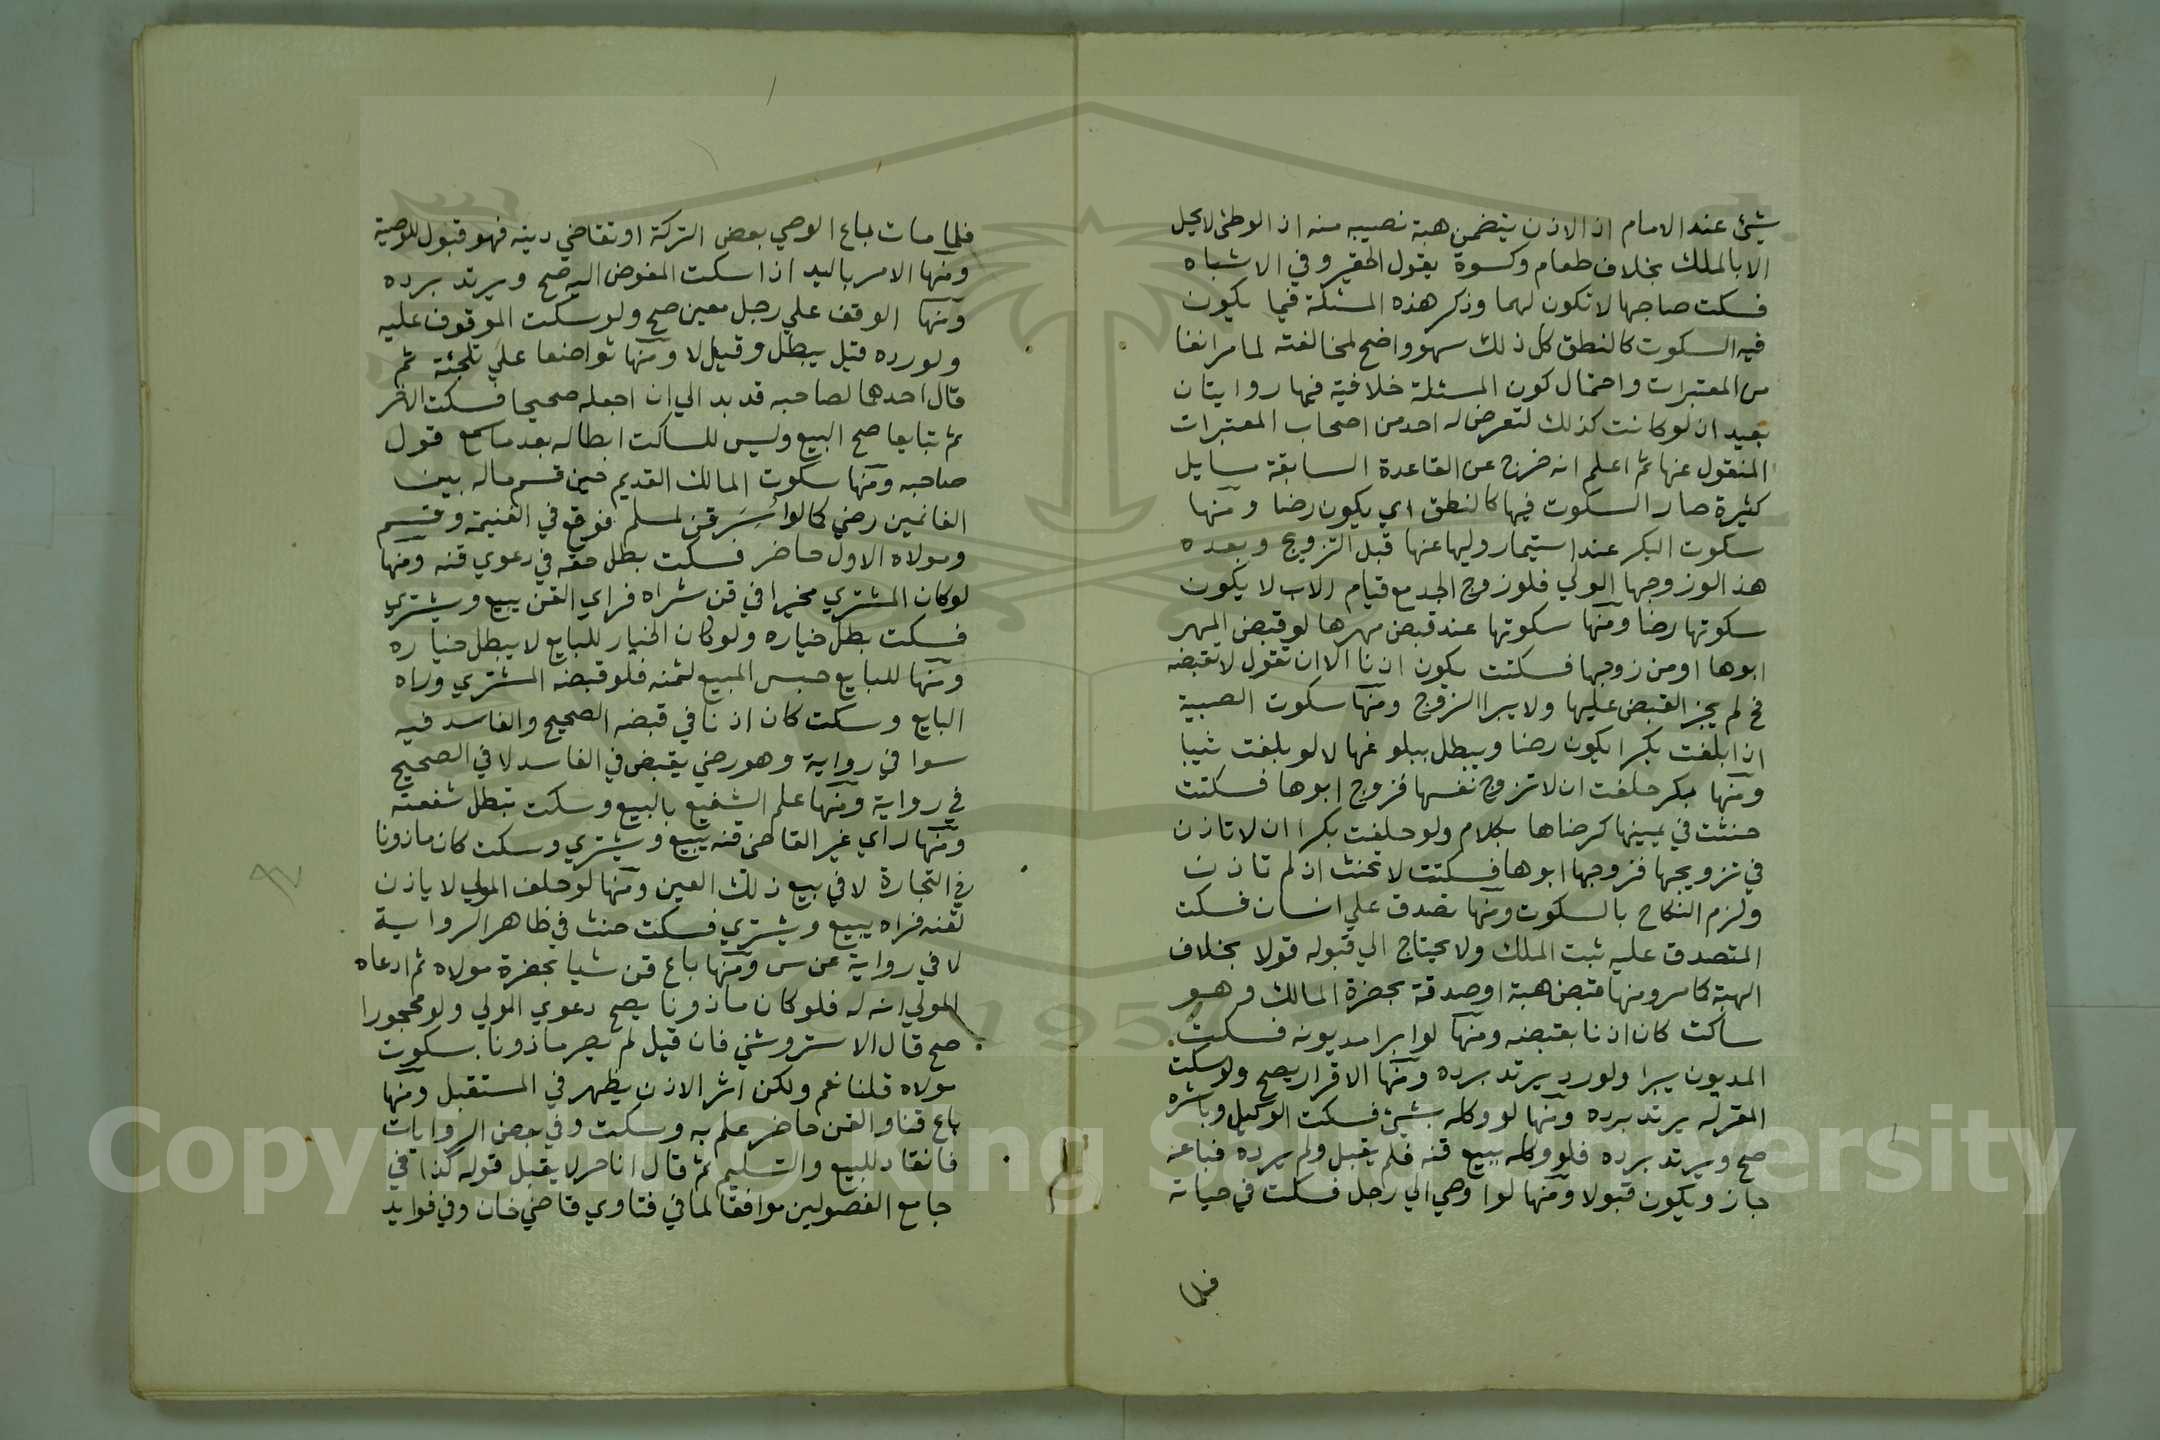 شيئ عند الامام اذ الاذن يتضمن هبة نصيبه منه اذ الوطئ لا يحل
الا بالملك بخلاف طعام وكسوة يقول الحقير وفي الاشباه
فسكت صاحبها لا تكون لهما وذكر هذه المسئلة فيما يكون
فيه السكوت كالنطق كل ذلك سهو واضح لمخالفته لما مر انفا
من المعتبرات واحتمال كون المسئلة خلافية فيها روايتان
بعيد ان لو كانت كذلك لتعرض له احد من اصحاب المعتبرات
المنقول عنها ثم اعلم انه خرج عن القاعدة السابقة مسايل
كثيرة صار السكوت فيها كالنطق اي يكون رضا ومنها
سكوت البكر عند استيمار وليها عنها قبل التزويج وبعده
هذا لو زوجها الولي فلو زوج الجد مع قيام الاب لا يكون
سكوتها رضا ومنها سكوتها عند قبض مهرها لو قبض المهر
ابوها او من زوجها فسكتت يكون اذنا الا ان تقول لا تقبضه
فح لم يجز القبض عليها ولا يبرا الزوج ومنها سكوت الصبية
اذا بلغت بكرا يكون رضا ويبطل ببلوغها لا لو بلغت ثيبا
ومنها بكر حلفت ان لا تزوج نفسها فزوج ابوها فسكتت
حنثت في يمينها كرضاها بكلام ولو حلفت بكرا ان لا تاذن
في تزويجها فزوجها ابوها فسكتت لا تحنث اذ لم تاذن
ولزم النكاح بالسكوت ومنها تصدق علي انسان فسكت
المتصدق عليه ثبت الملك ولا يحتاج الي قبوله قولا بخلاف
الهبة كما مر ومنها قبض هبة او صدقة بحضرة المالك وهو
ساكت كان اذنا بقبضه ومنها لو ابرا مديونه فسكت
المديون يبرا ولو رد يرتد برده ومنها الاقرار يصح ولو سكت
المقر له يرتد برده ومنها لو وكله بشيئ فسكت الوكيل وباشره
صح ويرتد برده فلو وكله ببيع قنه فلم يقبل ولم يرده فباعه
جاز ويكون قبولا ومنها لو اوصي الي رجل فسكت في حياته
فلما
فلما مات باع الوصي بعض التركة او تقاضي دينه فهو قبول للوصية
ومنها الامر باليد اذا سكت المفوض اليه صح ويرتد برده
ومنها الوقف علي رجل معين صح ولو سكت الموقوف عليه
ولو رده قيل يبطل وقيل لا ومنها تواضعا علي تلجئة ثم
قال احدهما لصاحبه قد بدا لي ان اجعله صحيحا فسكت الاخر
ثم تبايعا صح البيع وليس للساكت ابطاله بعد ما سمع قول
صاحبه ومنها سكوت المالك القديم حين قسم ماله بين
الغانمين رضي كما لو اسر قن لمسلم فوقع في الغنيمة وقسم
ومولاه الاول حاضر فسكت بطل حقه في دعوي قنه ومنها
لو كان المشتري مخيرا في قن شراه فراي القن يبيع ويشتري
فسكت بطل خياره ولو كان الخيار للبايع لا يبطل خياره
ومنها للبايع حبس المبيع لثمنه فلو قبضه المشتري وراه
البايع وسكت كان اذنا في قبضه الصحيح والفاسد فيه
سوا في رواية وهو رضي بقبض في الفاسد لا في الصحيح
في رواية ومنها علم الشفيع بالبيع وسكت تبطل شفعته
ومنها راي غير القاضي قنه يبيع ويشتري وسكت كان ماذونا
في التجارة لا في بيع ذلك العين ومنها لو حلف المولي لا ياذن
لقنه فراه يبيع ويشتري فسكت حنث في ظاهر الرواية
لا في رواية عن س ومنها باع قن شيا بحضرة مولاه ثم ادعاه
المولي انه له فلو كان ماذونا يصح دعوي المولي ولو محجورا
صح قال الاستروشني فان قيل لم يصر ماذونا بسكوت
مولاه قلنا نعم ولكن اثر الاذن يظهر في المستقبل ومنها
باع قنا والقن حاضر علم به وسكت وفي بعض الروايات
فانقاد للبيع والتسليم ثم قال انا حر لا يقبل قوله كذا في
جامع الفصولين موافقا لما في فتاوي قاضي خان وفي فوايد
Copyright © King Saud University
1957